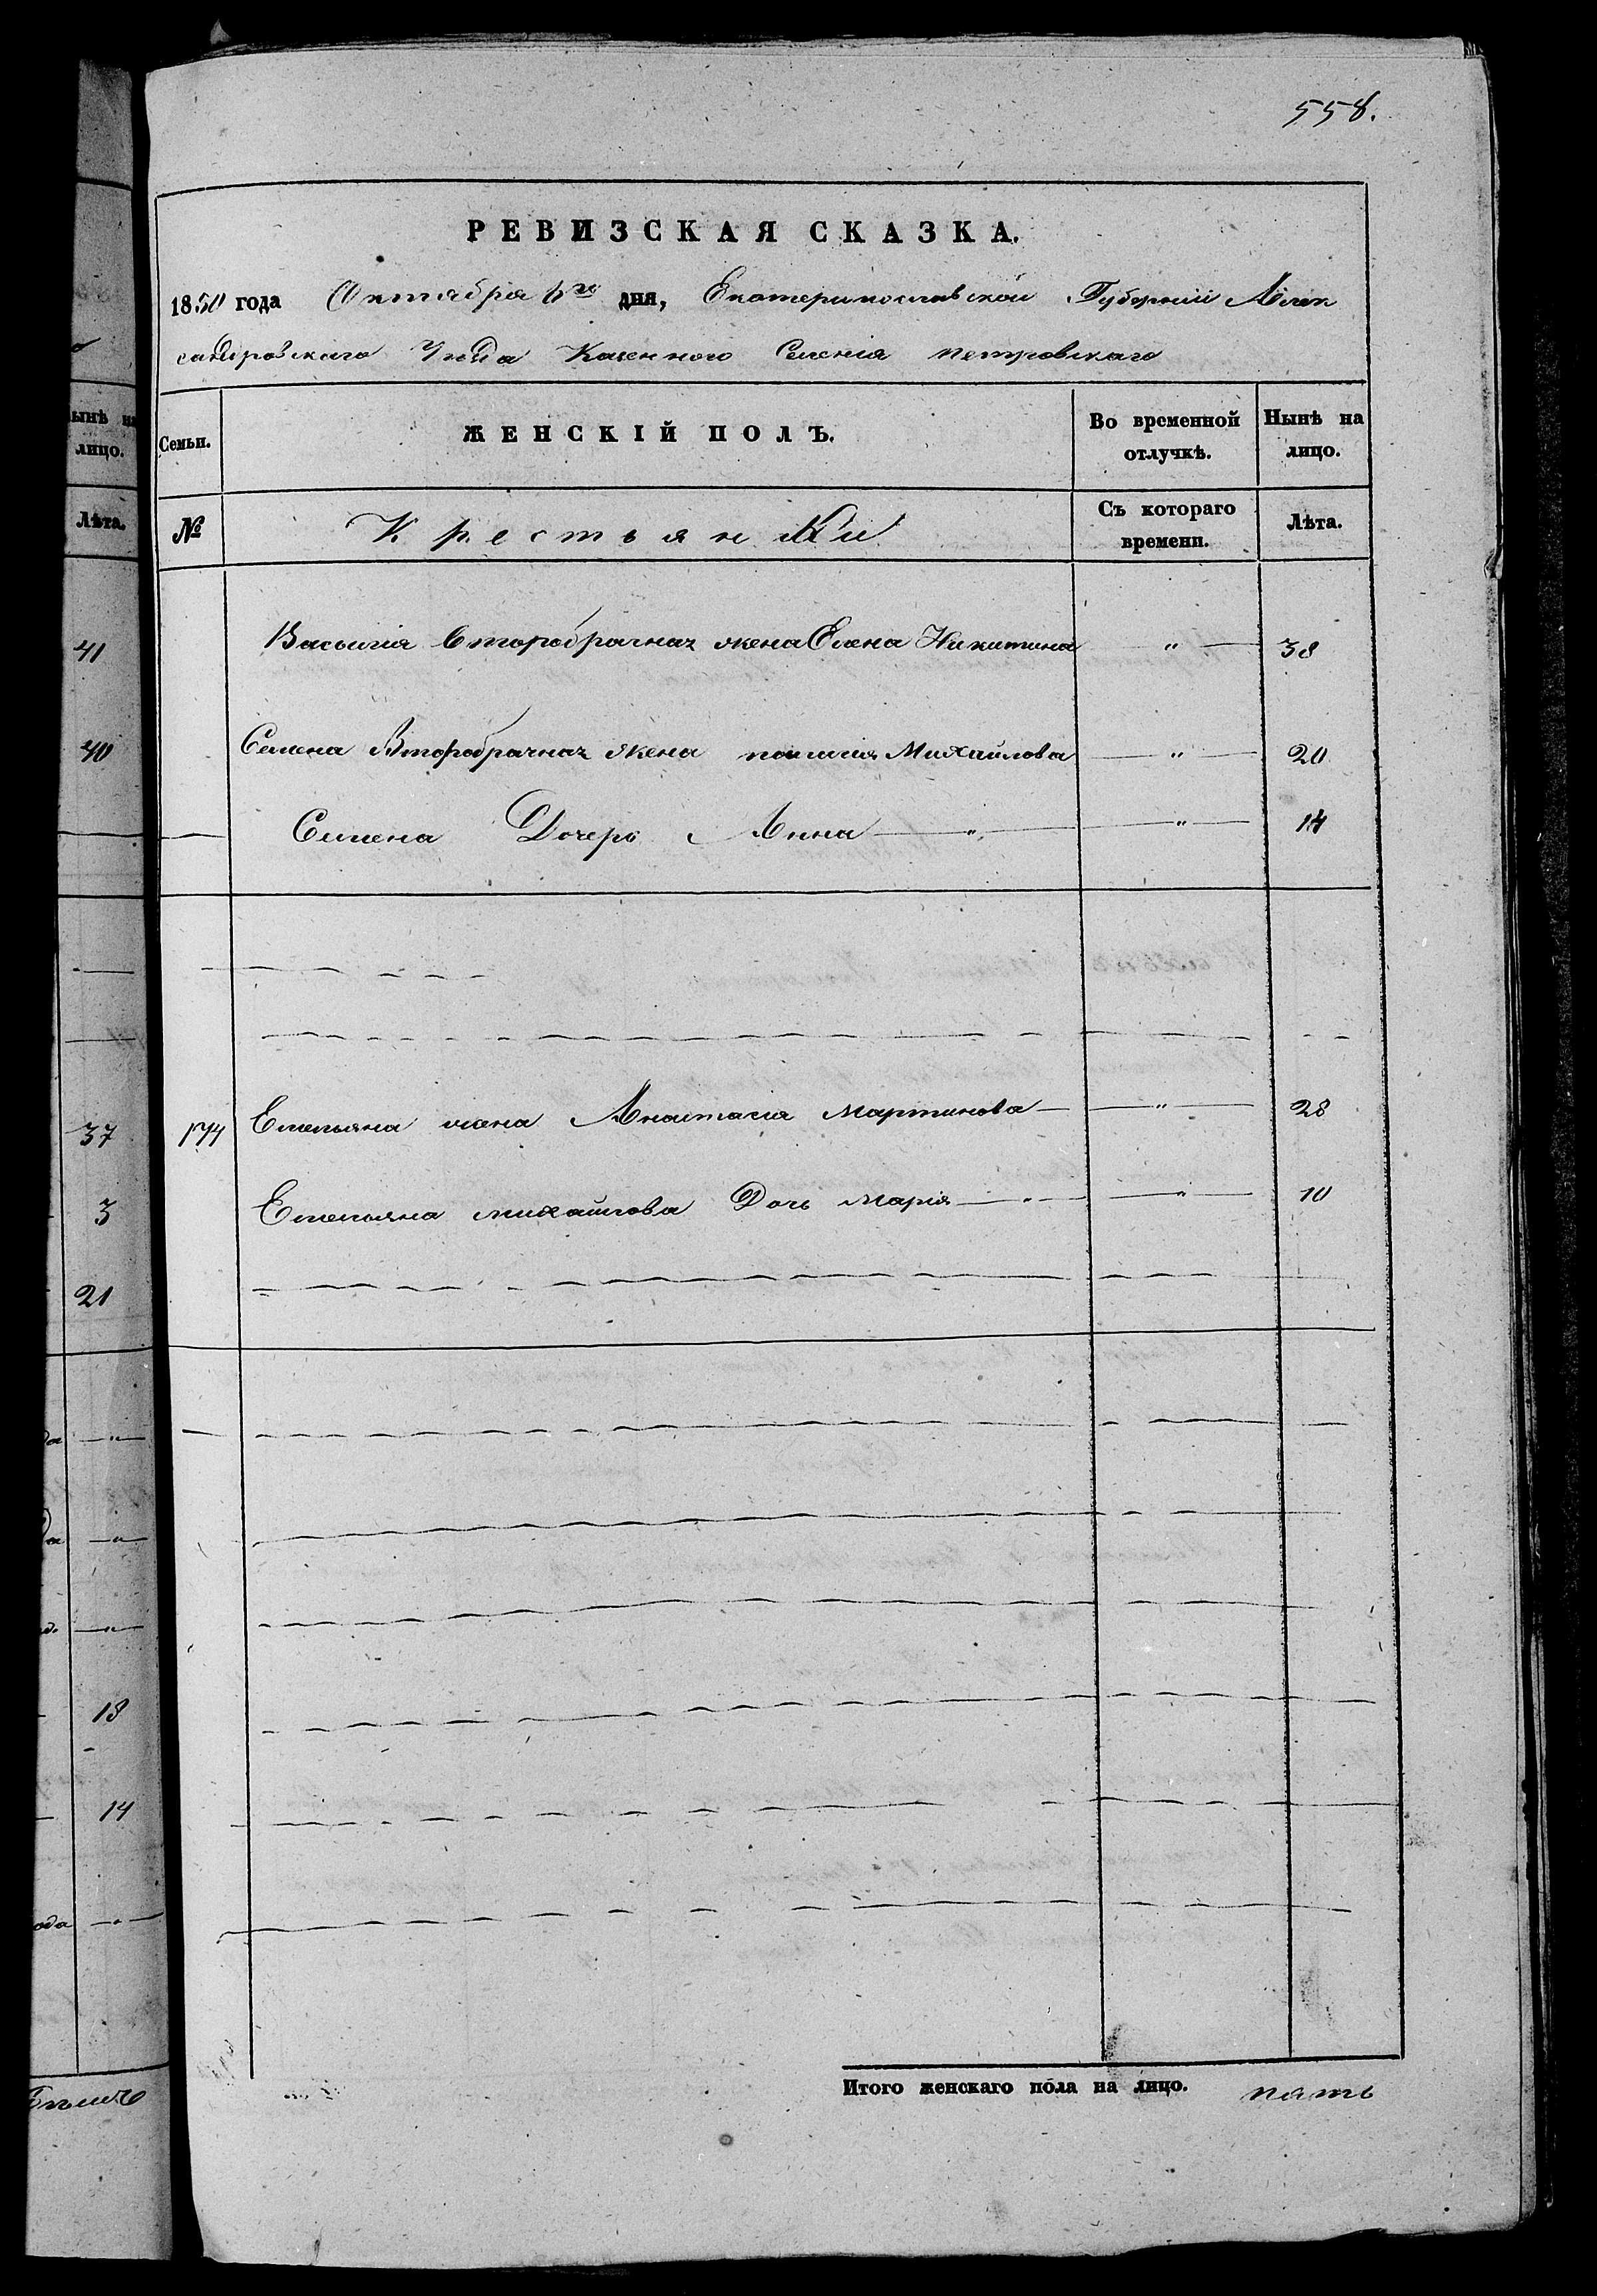 558.
РЕВИЗСКАЯ СКАЗКА.
1850 года Октября 6го дня, Екатеринославской Губерніи Алек
сандровскаго Уѣзда Казенного Селенія петровскаго
ынѣ на
лицо.
Лѣта.
41
40
37
3
21
да —"—
—"—
—"—
18
14
ода —"—
Семьи.
ЖЕНСКІЙ ПОЛЪ.
Во временной
отлучкѣ.
Нынѣ на
лицо.
№
Крестьянки
Съ котораго
времени.
Лѣта.
Василія Второбрачная жена Елена Никитина —"— 38
Семена Второбрачная жена пелагия Михайлова —"— 20
Семена Дочерь Анна —"— —"— 14
174 Емельяна жена Анастасія мартинова —"— 28
Емельяна михайлова Дочь марія —"— —"— 10
Итого женскаго пола на лицо. пять